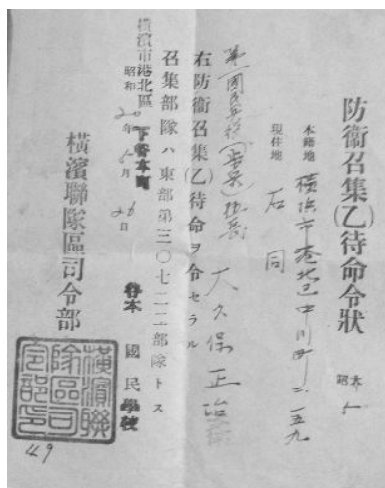 防衛召集(乙)待命令狀
本籍地 橫浜市港北区中川町二一五九
現住地 右同
第一國民兵役 伍長 大久保正治
右防衛召集(乙)待命ヲ令セラル
召集部隊ハ東部第三〇七二二部隊トス
橫濱市港北區下谷本町 谷本國民學校
昭和20年6月26日
橫濱聯隊區司令部
橫濱聯隊區司令部印
49